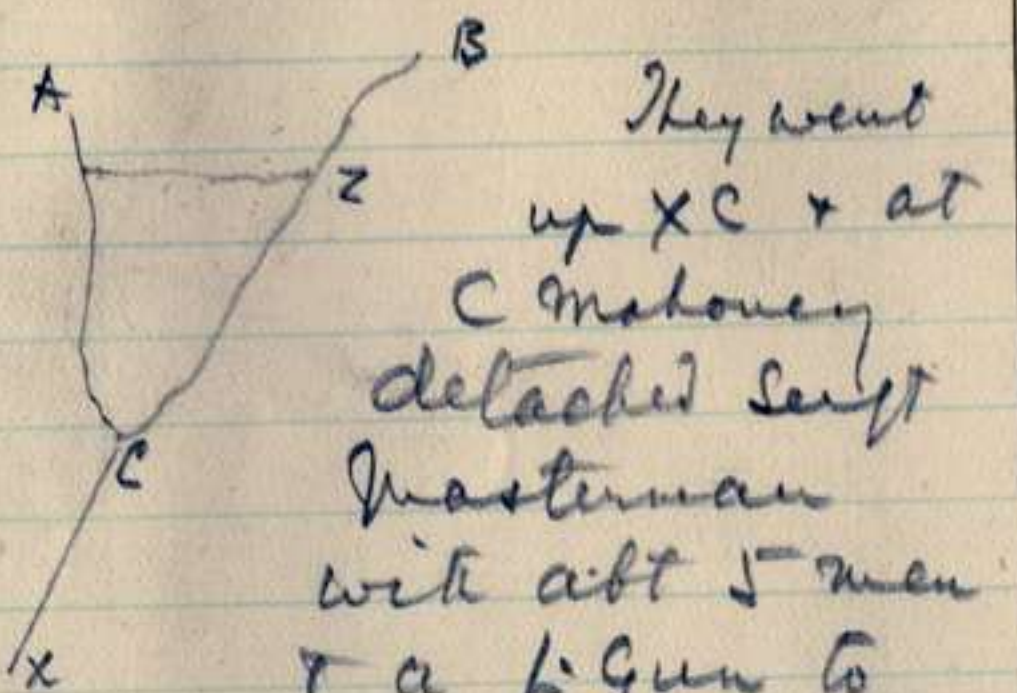 A
B
Z
C
X
They went
up XC & at
C Mahoney
detached Sergt
Masterman
with abt 5 men
& a L. Gun to